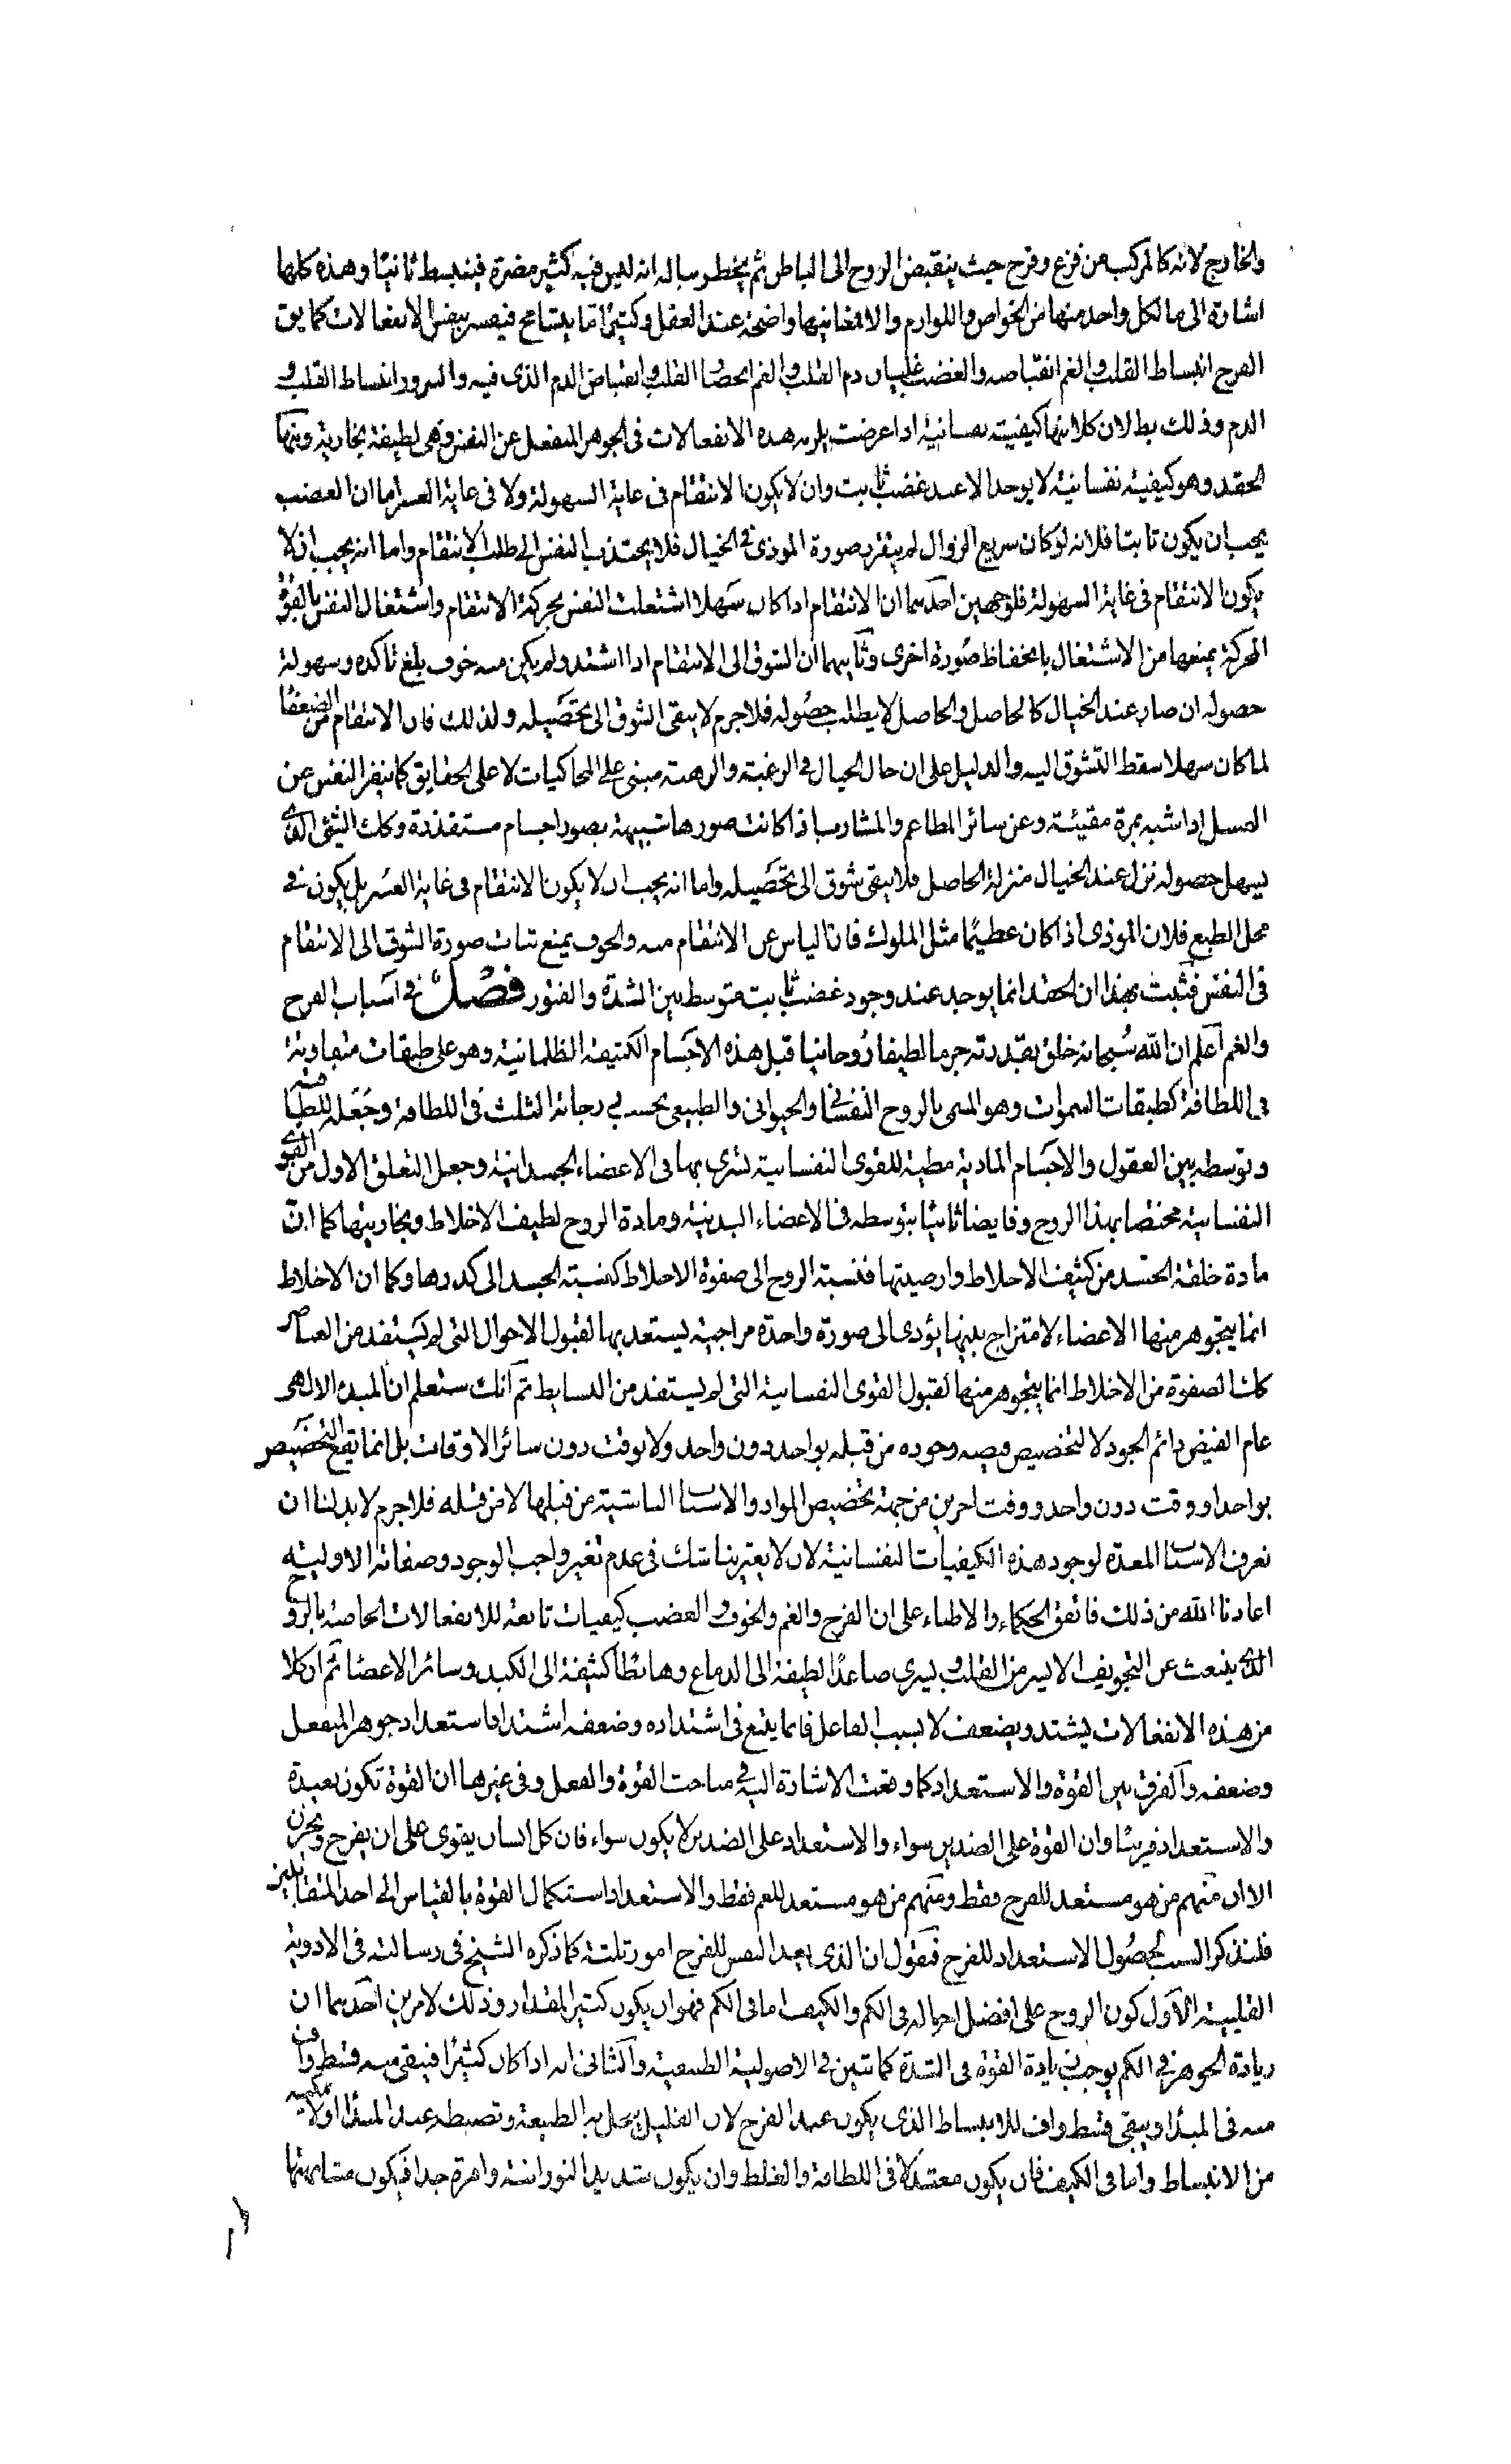 والخارج لانه كالمركب من فزع وفرح حيث ينقبض الروح الى الباطن ثم يخطر بباله انه ليس فيه كثير مضرة فينبسط ثانيا وهذه كلها
اشارة الى ما لكل واحد منها من الخواص واللوازم والا فمعانيها واضحة عند العقل وكثيرا ما يتسامح فيفسر ببعض الانفعالات كما يق
الفرح انبساط القلب والغم انقباضه والغضب غليان دم القلب والغم انحصار القلب وانقباض الدم الذى فيه والسرور انبساط القلب و
الدم وذلك بط لان كلا منها كيفية نفسانية اذا عرضت يلزمه هذه الانفعالات فى الجوهر المنفعل عن النفس وهى لطيفة بخارية ومنها
الحقد وهو كيفية نفسانية لا يوجد الا عند غضب ثابت وان لا يكون الانتقام فى غاية السهولة ولا فى غاية العسر اما ان الغضب
يجب ان يكون ثابتا فلانه لو كان سريع الزوال لم يتقرر صورة الموذى فى الخيال فلا يجتذب النفس الى طلب الانتقام واما انه يجب ان لا
يكون الانتقام فى غاية السهولة فلوجهين احدهما ان الانتقام اذا كان سهلا اشتغلت النفس بحركة الانتقام واشتغال النفس بالقوة
المحركة يمنعها من الاشتغال بانحفاظ صورة اخرى وثانيهما ان الشوق الى الانتقام اذا اشتد ولم يكن منه خوف بلغ تاكده وسهولة
حصوله ان صار عند الخيال كالحاصل والحاصل لا يطلب حصوله فلا جرم لا يبقى الشوق الى تحصيله ولذلك فان الانتقام من الضعفا
لما كان سهلا سقط التشوق اليه والدليل على ان حال الخيال فى الرغبة والرهبة مبنى على المحاكيات لا على الحقايق كما ينفر النفس عن
العسل اذا شبه بمرة مقيئة وعن سائر المطاعم والمشارب اذا كانت صورها شبيهة بصور اجسام مستقذرة وكك الشئ الذى
يسهل حصوله نزل عند الخيال منزلة الحاصل فلا يبقى شوق الى تحصيله واما انه يجب ان لا يكون الانتقام فى غاية العسر بل يكون فى
محل الطمع فلان الموذى اذا كان عظيما مثل الملوك فان الياس عن الانتقام منه والخوف يمنع ثبات صورة الشوق الى الانتقام
فى النفس فثبت بهذا ان الحقد انما يوجد عند وجود غضب ثابت متوسط بين الشدة والفتور فصل فى اسباب الفرح
والغم اعلم ان الله سبحانه خلق بقدرته جرما لطيفا روحانيا قبل هذه الاجسام الكثيفة الظلمانية وهو على طبقات متفاوتة
فى اللطافة كطبقات السموات وهو المسمى بالروح النفسانى والحيوانى والطبيعى بحسب درجاته الثلث فى اللطافة وجعله للطافته
وتوسطه بين العقول والاجسام المادية مطية للقوى النفسانية تسرى بها فى الاعضاء الجسدانية وجعل التعلق الاول من القوى
النفسانية مختصا بهذا الروح وفايضا ثانيا بتوسطه فى الاعضاء البدنية ومادة الروح لطيف الاخلاط وبخاريتها كما ان
مادة خلقة الجسد من كثيف الاخلاط وارضيتها فنسبة الروح الى صفوة الاخلاط كنسبة الجسد الى كدرها وكما ان الاخلاط
انما يتجوهر منها الاعضاء لامتزاج بينها يؤدى الى صورة واحدة مزاجية يستعد بها لقبول الاحوال التى لم يستفد من العناصر
كك الصفوة من الاخلاط انما يتجوهر منها لقبول القوى النفسانية التى لم يستفد من البسايط ثم انك ستعلم ان المبدء الالهى
عام الفيض دائم الجود لا تخصيص فيه وجوده من قبله بواحد دون واحد ولا بوقت دون سائر الاوقات بل انما يقع التخصيص
بواحد او وقت دون واحد ووقت اخرين من جهة تخصيص المواد والاسباب الناشية من قبلها لا من قبله فلا جرم لا بد لنا ان
نعرف الاسباب المعدة لوجود هذه الكيفيات النفسانية لان لا يعترينا شك فى عدم تغير واجب الوجود وصفاته الاولية
اعاذنا الله من ذلك فاتفق الحكماء والاطباء على ان الفرح والغم والخوف والغضب كيفيات تابعة للانفعالات الخاصة بالروح
الذى ينبعث عن التجويف الايسر من القلب ويسرى صاعدا لطيفة الى الدماغ وهابطا كثيفة الى الكبد وسائر الاعضا ثم ان كلا
من هذه الانفعالات يشتد ويضعف لا بسبب الفاعل فانما يتبع فى اشتداده وضعفه اشتداد استعداد جوهر المنفعل
وضعفه والفرق بين القوة والاستعداد كما وقعت الاشارة اليه فى مباحث القوة والفعل وفى غيرها ان القوة تكون بعيدة
والاستعداد قريبا وان القوة على الضدين سواء والاستعداد على الضدين لا يكون سواء فان كل انسان يقوى على ان يفرح ويحزن
الا ان منهم من هو مستعد للفرح فقط ومنهم من هو مستعد للغم فقط والاستعداد استكمال القوة بالقياس الى احد المتقابلين
فلنذكر السبب لحصول الاستعداد للفرح فنقول ان الذى يعد النفس للفرح امور ثلثة كما ذكره الشيخ فى رسالته فى الادوية
القلبية الاول كون الروح على افضل احواله فى الكم والكيف اما فى الكم فهو ان يكون كثير المقدار وذلك لامرين احدهما ان
زيادة الجوهر فى الكم يوجب زيادة القوة فى الشدة كما تبين فى الاصولية الطبيعية والثانى انه اذا كان كثيرا فيبقى منه قسط واف
منه فى المبدا ويبقى قسط واف للانبساط الذى يكون عند الفرح لان القليل يبخل به الطبيعة وتضبطه عند المبدا ولا تمكنه
من الانبساط واما فى الكيف فان يكون معتدلا فى اللطافة والغلظ وان يكون شديد النورانية وافرة جدا فيكون مشابهتها